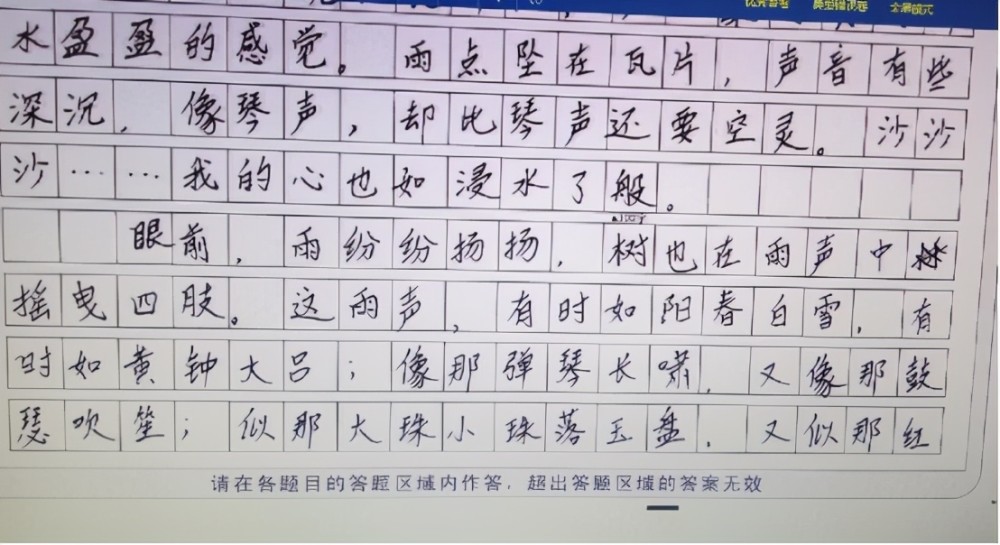 水盈盈的感觉。雨点坠在瓦片，声音有些
深沉，像琴声，却比琴声还要空灵。沙沙
沙……我的心也如浸水了般。
眼前，雨纷纷扬扬，树也在雨声中
摇曳四肢。这雨声，有时如阳春白雪，有
时如黄钟大吕；像那弹琴长啸，又像那鼓
瑟吹笙；似那大珠小珠落玉盘，又似那红
请在各题目的答题区域内作答，超出答题区域的答案无效